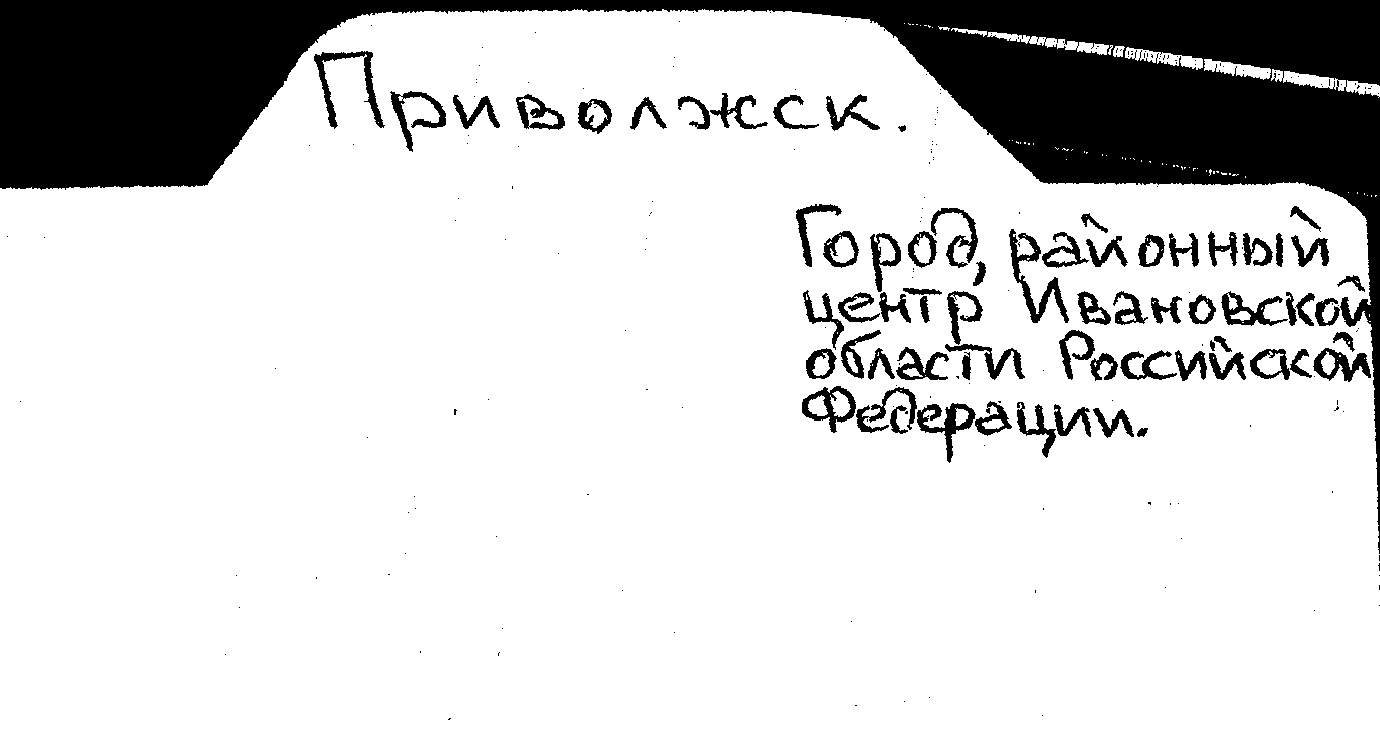 Приволжск.
Город, районный
центр Ивановской
области Российской
Федерации.